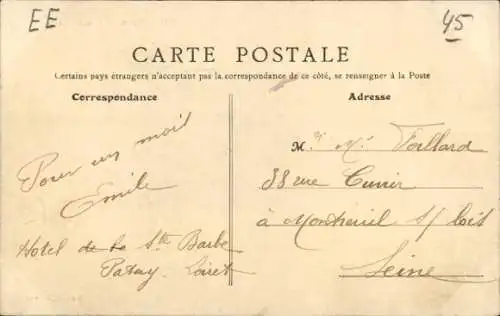 EE
45
CARTE POSTALE
Certains pays étrangers n'acceptant pas la correspondance de ce côté, se renseigner à la Poste
Correspondance
Adresse
Pour un mois
Emile
Hotel de la Ste Barbe
Patay. Loiret
M. et Me
38 rue Cuvier
à Montreuil s/ bois
Seine